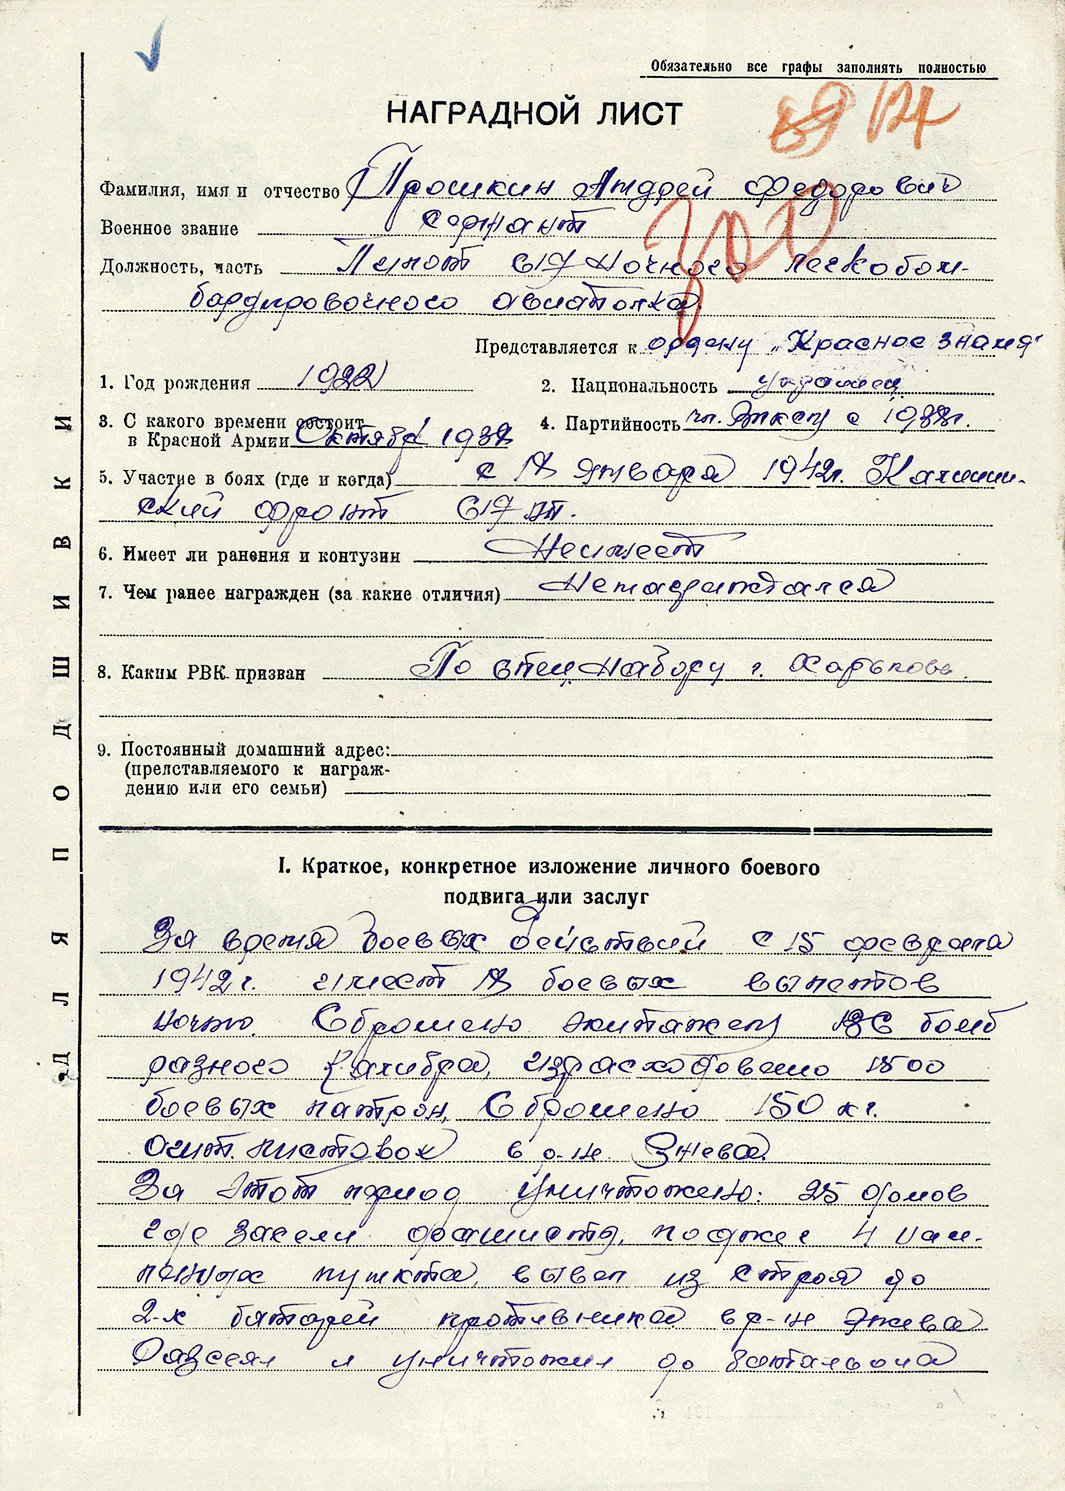 Обязательно все графы заполнять полностью
НАГРАДНОЙ ЛИСТ
Фамилия, имя и отчество Прошкин Андрей Федорович
Военное звание сержант
Должность, часть Пилот 617 Ночного легкобом-
бардировочного авиаполка
Представляется к ордену „Красное знамя"
1. Год рождения 1922
2. Национальность украинец
3. С какого времени состоит
в Красной Армии Октябрь
4. Партийность чл. ВЛКСМ с
5. Участие в боях (где и когда) с января 1942г. Калинин-
ский фронт 617 АП.
6. Имеет ли ранения и контузии Не имеет
7. Чем ранее награжден (за какие отличия) Не награждался
8. Каким РВК призван По спец. набору г. Харьковь
9. Постоянный домашний адрес:
(представляемого к награж-
дению или его семьи)
I. Краткое, конкретное изложение личного боевого
подвига или заслуг
За время боевых действий с 15 февраля
1942г. имеет боевых вылетов
ночью. Сброшено экипажем бомб
разного калибра, израсходовано 1500
боевых патрон, Сброшено 150 кг.
агит. листовок в р-не
За этот период уничтожено: 25 домов
где засели фашисты, поджег 4 нас.
пункта, вывел из строя до
2-х батарей противника в р-не
Рассеял и уничтожил до батальона
ДЛЯ ПОДШИВКИ